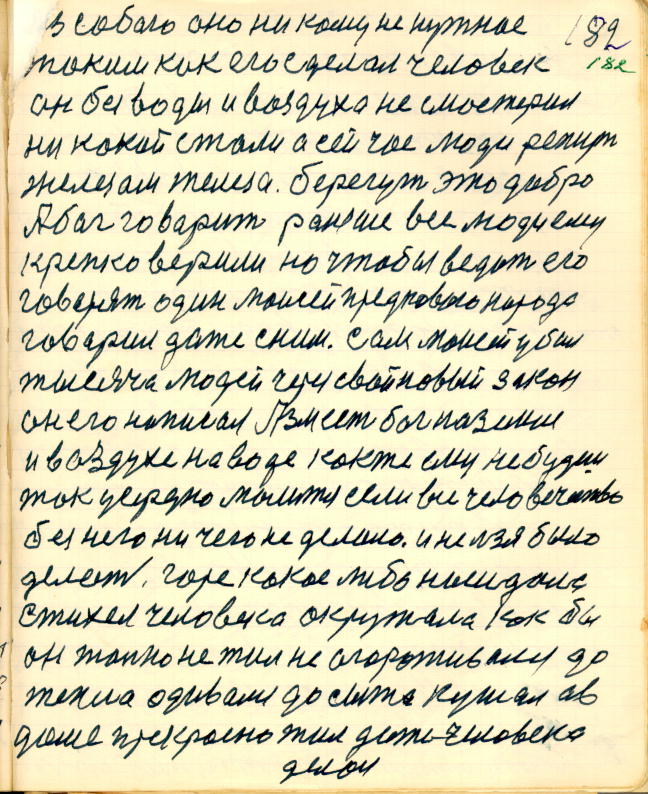 з собаго оно ни кому не нужное 182
таким как его сделал человек 182
он без воды и воздуха не смастерил
ни какой стали а сейчас люди
железам железа. берегут это добро
А бог говарит раньше все люди ему
крепко верили но чтобы ведат его
говарят один моисей народа
говарил даже сним. Сам моисей убил
тысяча людей через свой новый закон
он его написал Я вместе бог на земле
и воздухе на воде как же ему не будим
так усердно молится если вы человечество
без него ни чего не делало. и нелзя было
делат. горе какое либо
стихея человека окружала как бы
он жил не до
тепла одивали до сыта кушал ав
доме прекрасно жил дето человека
делои